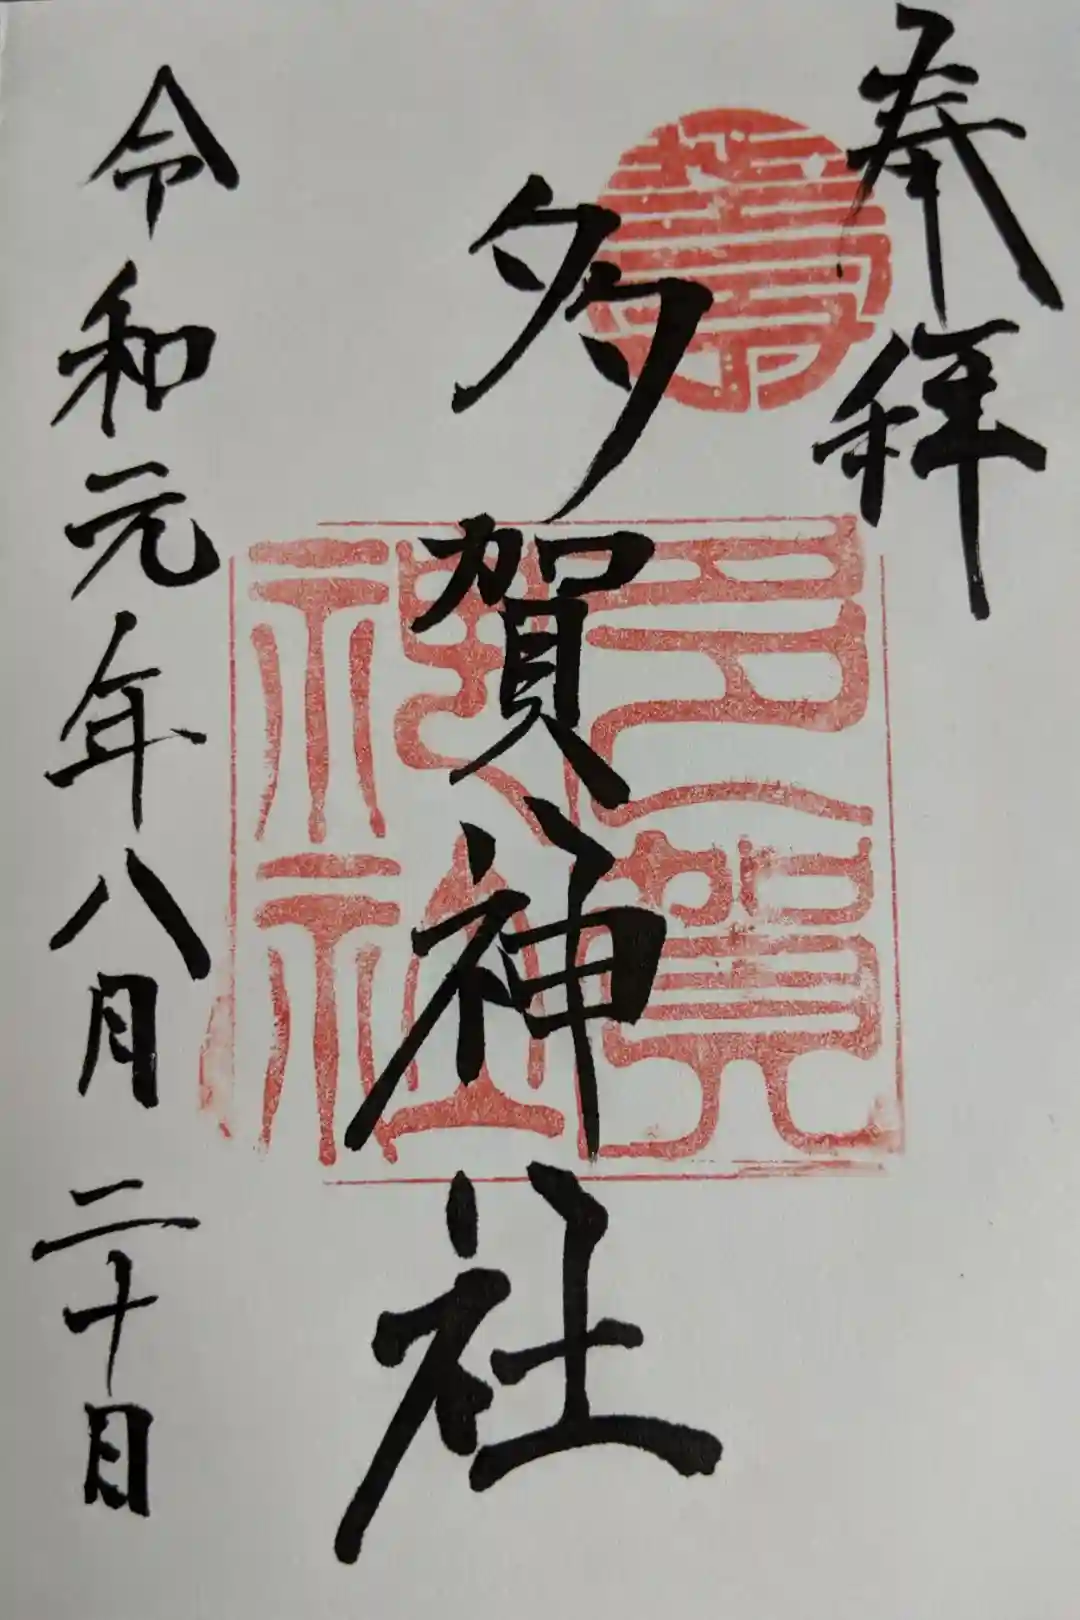 奉拝
多賀神社
多賀
神社
令和元年八月二十日